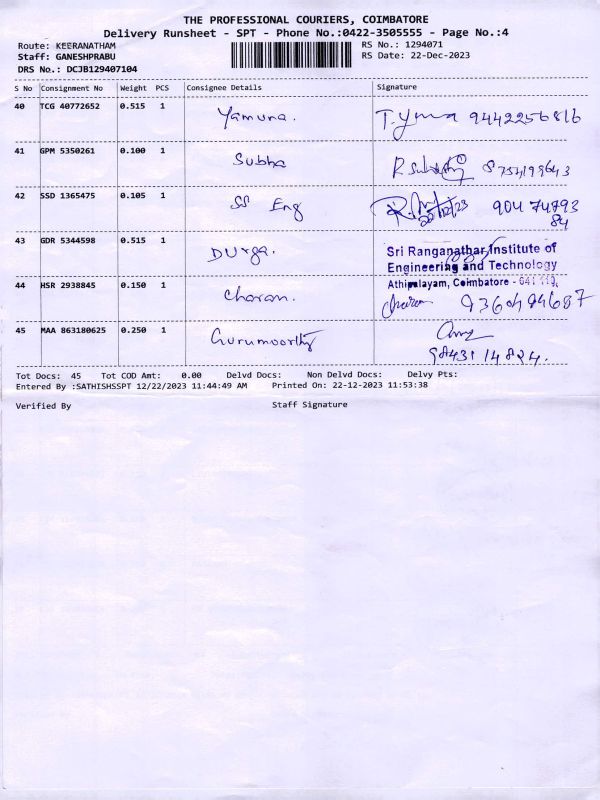 THE PROFESSIONAL COURIERS, COIMBATORE
Delivery Runsheet - SPT - Phone No.:0422-3505555 - Page No.:4
Route: KEERANATHAM RS No.: 1294071
Staff: GANESHPRABU RS Date: 22-Dec-2023
DRS No.: DCJB129407104
S No Consignment No Weight PCS Consignee Details Signature
40 TCG 40772652 0.515 1 Yamuna. T. 9442256816
41 GPM 5350261 0.100 1 Subha 8754199643
42 SSD 1365475 0.105 1 SS Eng 22/12/23 90474793
84
43 GDR 5344598 0.515 1 Durga. Sri Ranganathar Institute of
Engineering and Technology
Athipalayam, Coimbatore - 641 110.
44 HSR 2938845 0.150 1 Charan. Charan
45 MAA 863180625 0.250 1 Gurumoorthy
9843114824.
Tot Docs: 45 Tot COD Amt: 0.00 Delvd Docs: Non Delvd Docs: Delvy Pts:
Entered By :SATHISHSSPT 12/22/2023 11:44:49 AM Printed On: 22-12-2023 11:53:38
Verified By Staff Signature